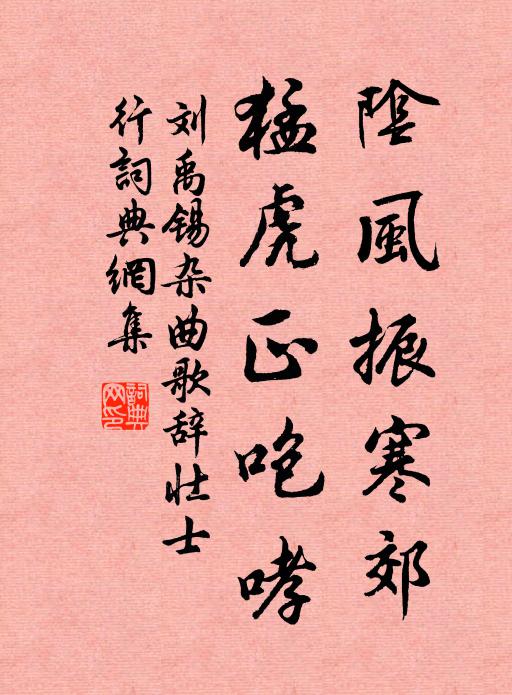 陰風振寒郊
猛虎正咆哮
刘禹锡杂曲歌辞壮士
行詞典網集
詞典
网印